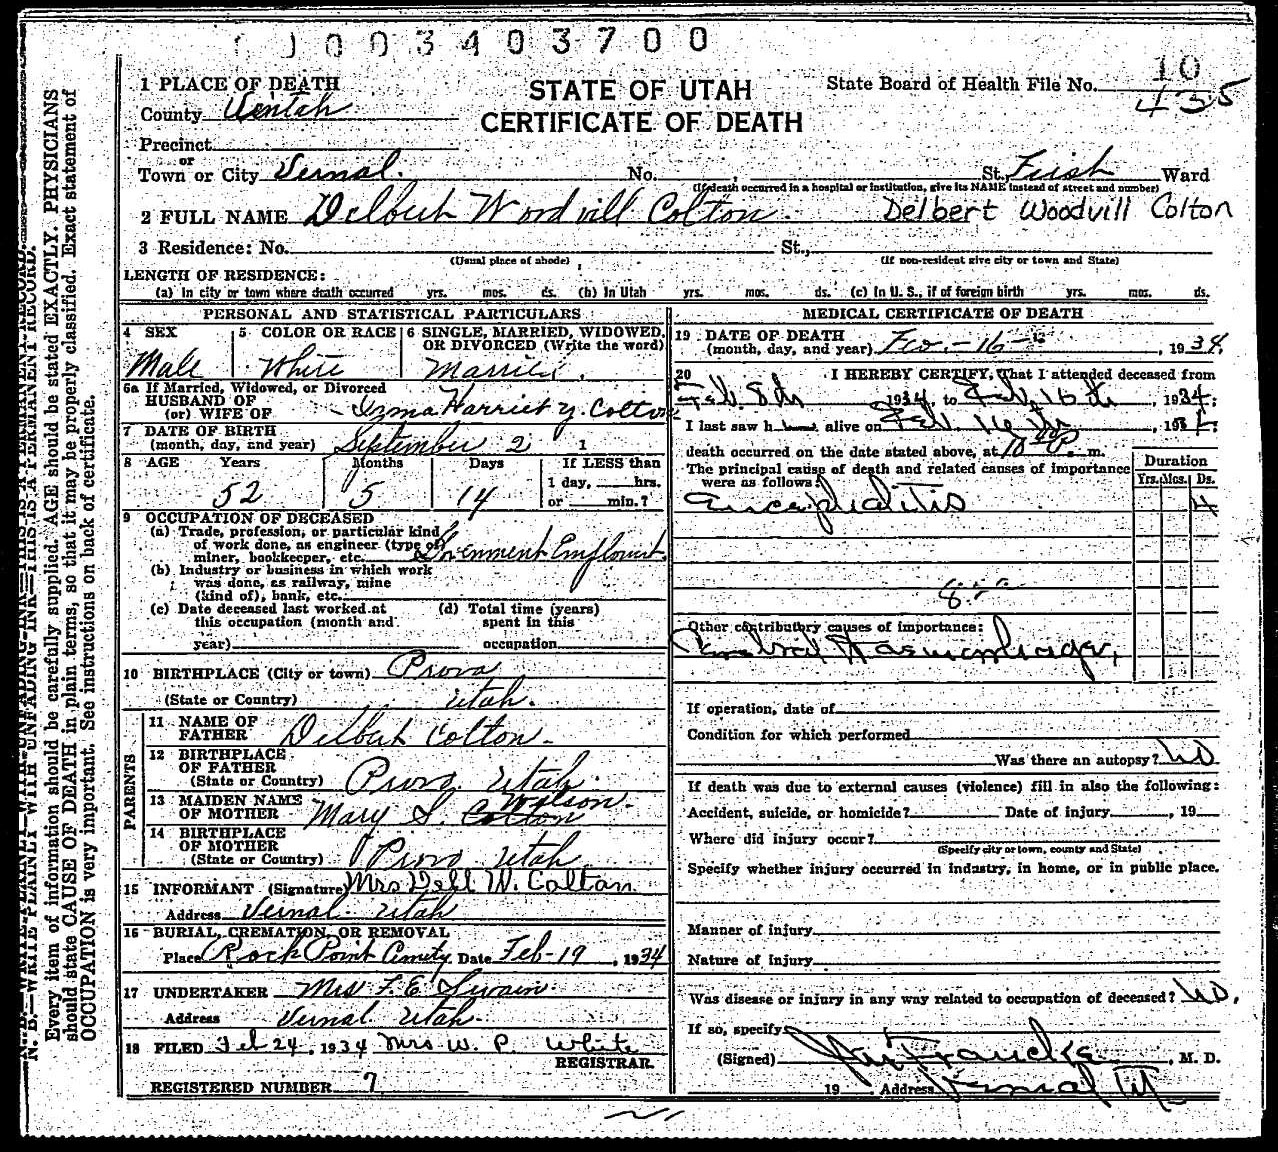 0003403700
1 PLACE OF DEATH
STATE OF UTAH
State Board of Health File No. 10
435
County Uintah
CERTIFICATE OF DEATH
Precinct
or
Town or City Vernal. No. , St., First Ward
(If death occurred in a hospital or institution, give its NAME instead of street and number)
2 FULL NAME Delbert Woodvill Colton. Delbert Woodvill Colton
3 Residence: No. St.,
(Usual place of abode) (If non-resident give city or town and State)
LENGTH OF RESIDENCE:
(a) In city or town where death occurred yrs. mos. ds. (b) In Utah yrs. mos. ds. (c) In U. S., if of foreign birth yrs. mos. ds.
PERSONAL AND STATISTICAL PARTICULARS
4 SEX
Male
5 COLOR OR RACE
White
6 SINGLE, MARRIED, WIDOWED,
OR DIVORCED (Write the word)
Married.
6a If Married, Widowed, or Divorced
HUSBAND OF
(or) WIFE OF Irma Harriet Y. Colton
7 DATE OF BIRTH
(month, day, and year) September 2 1
8 AGE Years Months Days If LESS than
1 day, hrs.
52 5 14 or min.?
9 OCCUPATION OF DECEASED
(a) Trade, profession, or particular kind
of work done, as engineer (type of)
miner, bookkeeper, etc. Government
(b) Industry or business in which work
was done, as railway, mine
(kind of), bank, etc.
(c) Date deceased last worked at
this occupation (month and
year)
(d) Total time (years)
spent in this
occupation
10 BIRTHPLACE (City or town) Provo
(State or Country) Utah.
PARENTS
11 NAME OF
FATHER Delbert Colton-
12 BIRTHPLACE
OF FATHER
(State or Country) Provo Utah.
13 MAIDEN NAME Wilson-
OF MOTHER Mary S. Colton
14 BIRTHPLACE
OF MOTHER
(State or Country) Provo Utah
15 INFORMANT (Signature) Mrs Dell W. Colton
Address Vernal Utah
16 BURIAL, CREMATION, OR REMOVAL
Place Rock Point Date Feb-19, 1934
17 UNDERTAKER Mrs F. E. Swain
Address Vernal Utah.
18 FILED Feb 24, 1934 Mrs W. P. White
REGISTRAR
REGISTERED NUMBER 7
MEDICAL CERTIFICATE OF DEATH
19 DATE OF DEATH
(month, day, and year) -16- , 1934.
20 I HEREBY CERTIFY, That I attended deceased from
Feb. 8th 1934, to Feb. 16th, 1934;
I last saw h alive on Feb. 16 th, 193
death occurred on the date stated above, at 10 m.
The principal cause of death and related causes of importance
were as follows:
Duration
Yrs. Mos. Ds.
4
Other contributory causes of importance:
If operation, date of
Condition for which performed
Was there an autopsy? No
If death was due to external causes (violence) fill in also the following:
Accident, suicide, or homicide? Date of injury , 19
Where did injury occur?
(Specify city or town, county and State)
Specify whether injury occurred in industry, in home, or in public place.
Manner of injury
Nature of injury
Was disease or injury in any way related to occupation of deceased? No.
If so, specify
(Signed) , M. D.
19 Address Vernal Ut
N. B.—WRITE PLAINLY WITH UNFADING INK—THIS IS A PERMANENT RECORD.
Every item of information should be carefully supplied. AGE should be stated EXACTLY. PHYSICIANS
should state CAUSE OF DEATH in plain terms, so that it may be properly classified. Exact statement of
OCCUPATION is very important. See instructions on back of certificate.